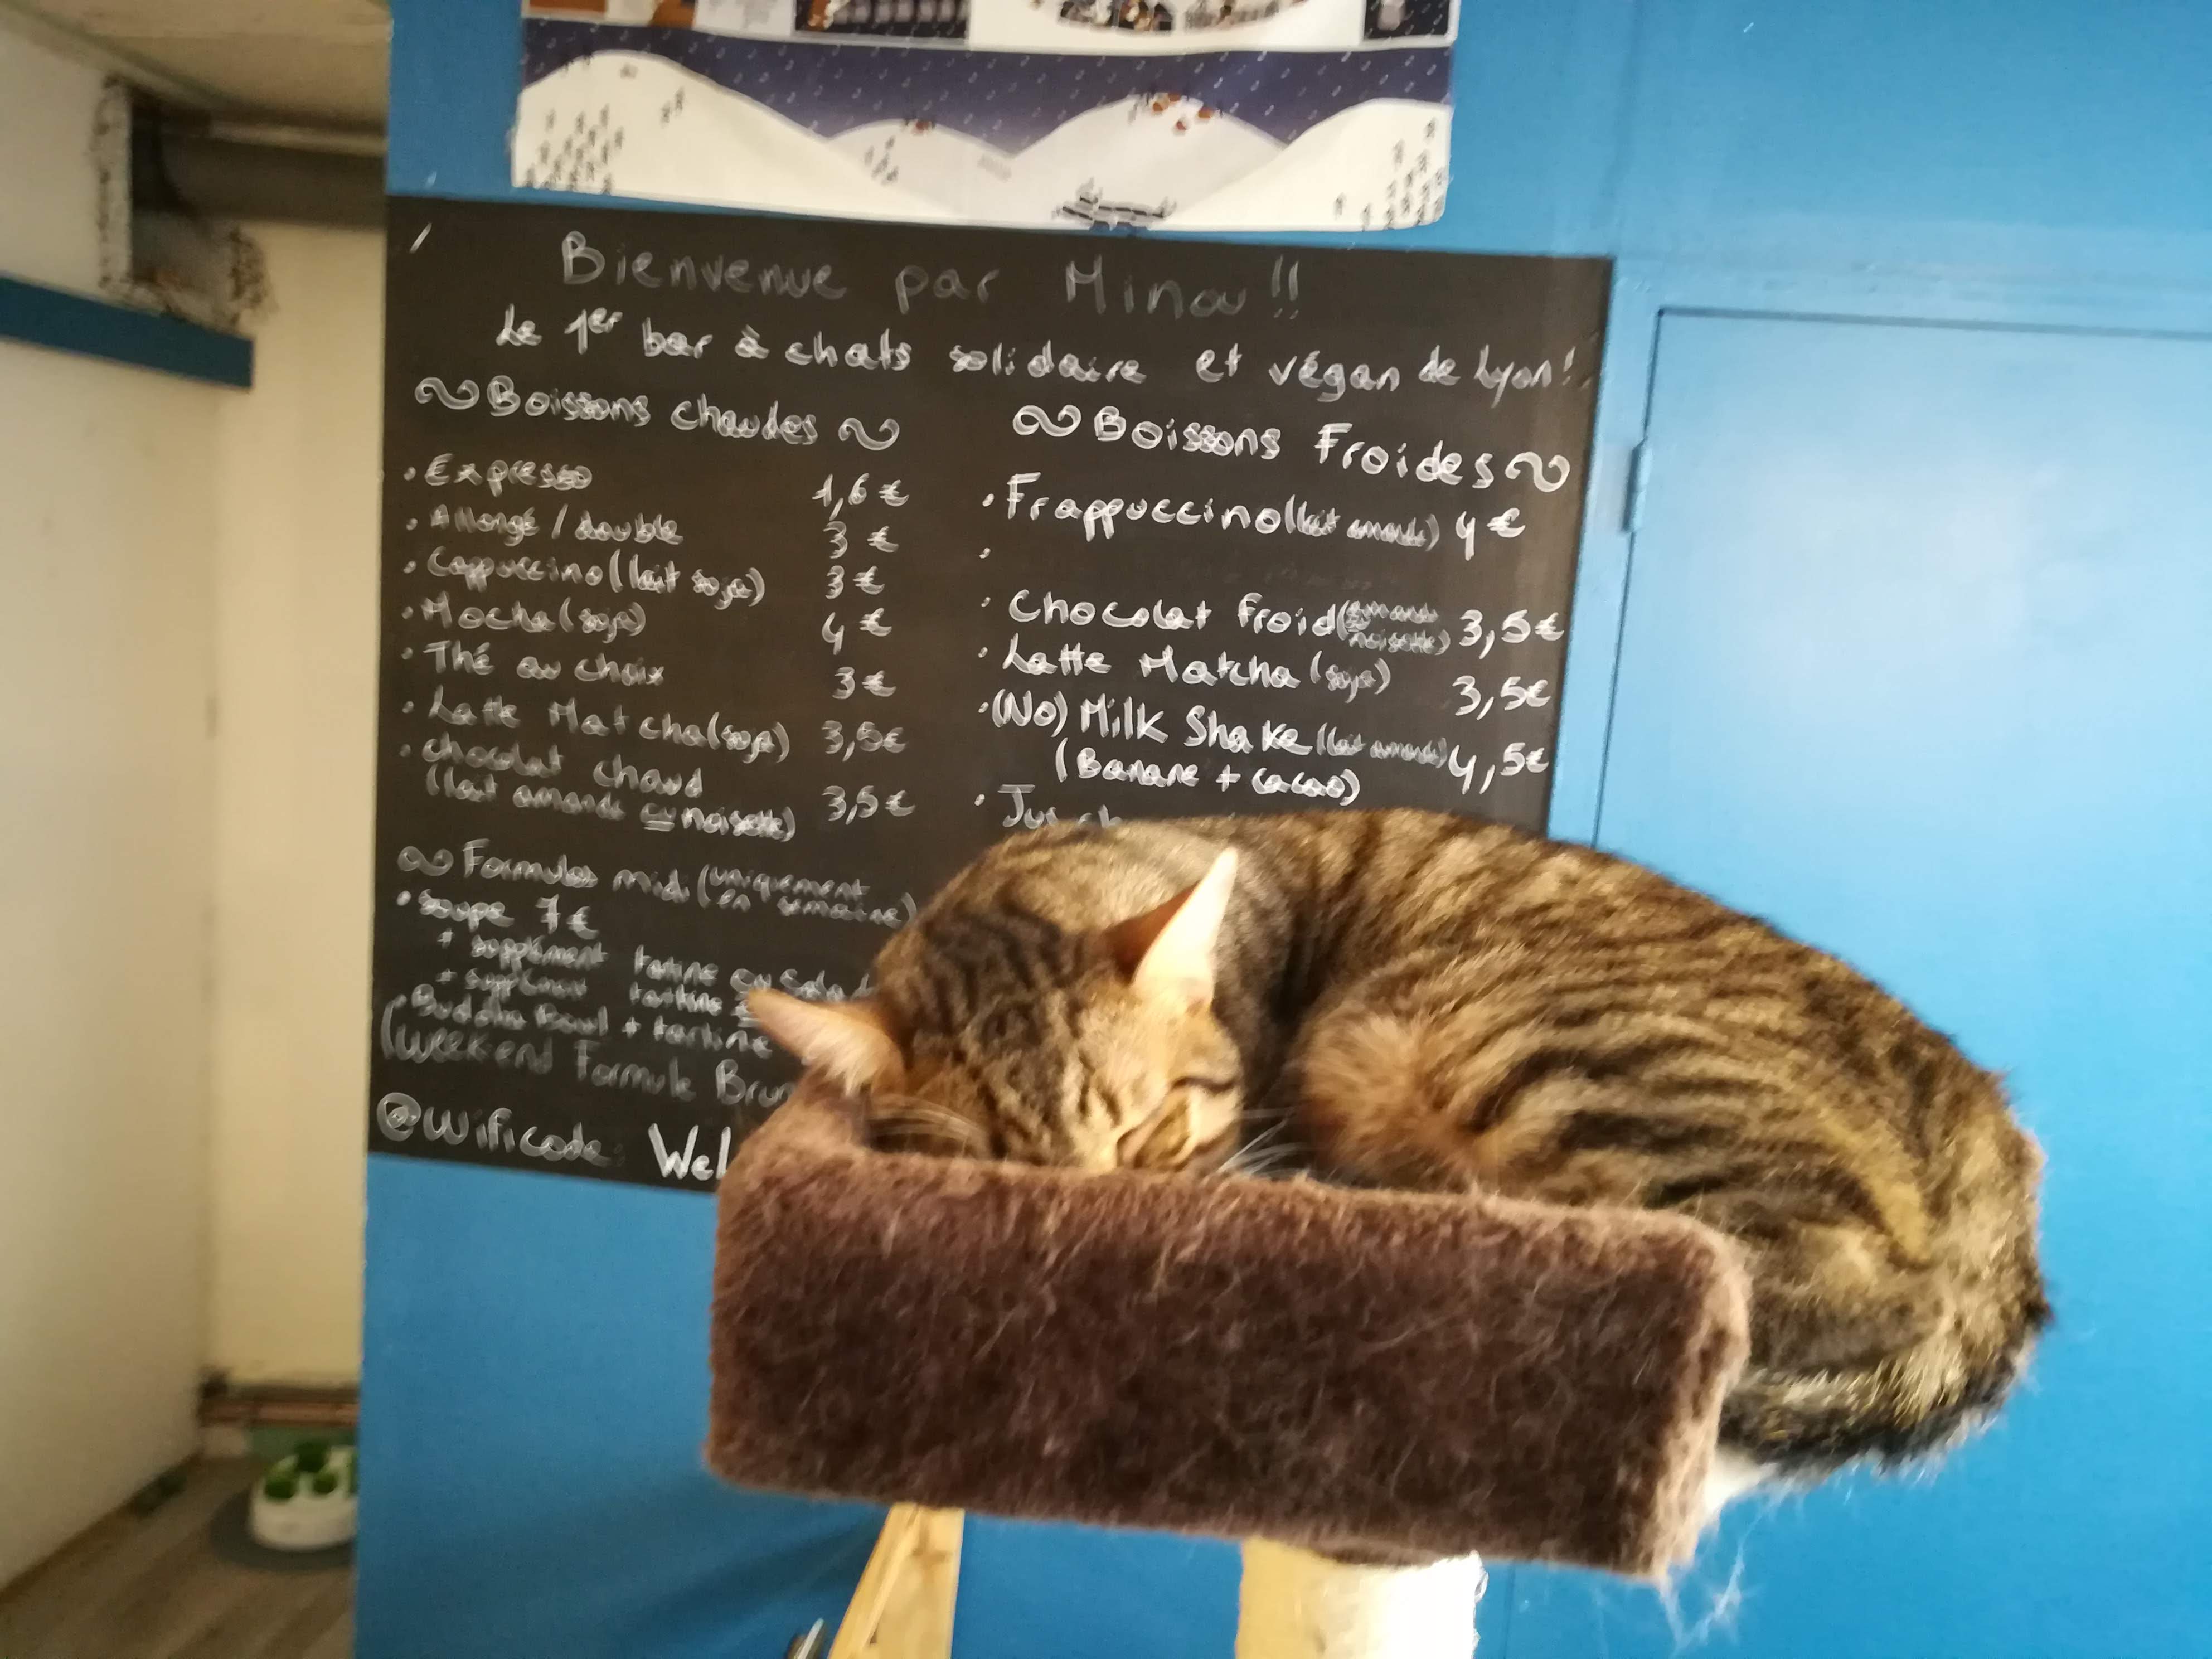 Bienvenue par Minou !!
Le 1er bar à chats solidaire et végan de Lyon !
Boissons chaudes
. Expresso 1,6 €
. Allongé / double 3 €
. Cappuccino (lait soja) 3 €
. Mocha (soja) 4 €
. Thé au choix 3 €
. Latte Matcha (soja) 3,5 €
. chocolat chaud
(lait amande ou noisette) 3,5 €
Formules midi (uniquement
en semaine)
. Soupe 7 €
+ supplément tartine ou
+ supplément tartine
. Buddha Bowl + tartine
(Weekend Formule
@Wificode:
Boissons Froides
. Frappuccino (lait amande) 4 €
.
. Chocolat froid (amande
ou noisette) 3,5 €
. Latte Matcha (soja) 3,5 €
. (No) Milk Shake (lait amande) 4,5 €
(Banane + cacao)
. Jus